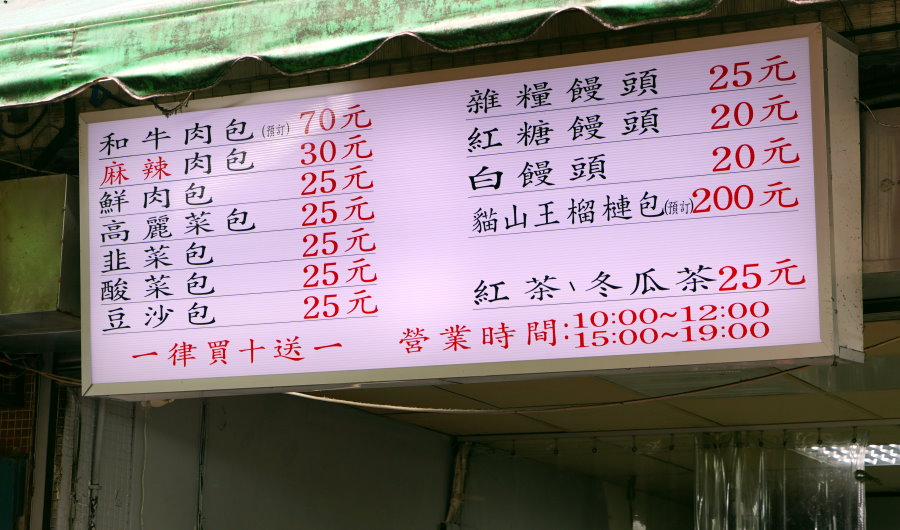 和牛肉包(預訂) 70元
麻辣肉包 30元
鮮肉包 25元
高麗菜包 25元
韭菜包 25元
酸菜包 25元
豆沙包 25元
一律買十送一
雜糧饅頭 25元
紅糖饅頭 20元
白饅頭 20元
貓山王榴槤包(預訂)200元
紅茶、冬瓜茶25元
營業時間:10:00~12:00
15:00~19:00